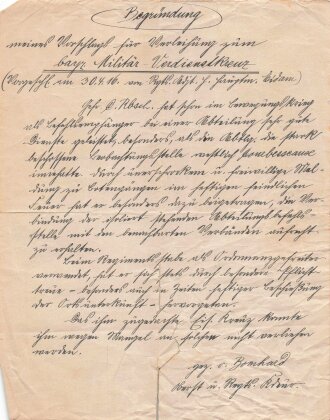 Begründung
meines Vorschlags für Verleihung zum
bayr. Militär Verdienstkreuz
(Vorgeschl. am 30.4.16. vom Regts. Adj. H. Hauptm.
hat schon im Bewegungskrieg
als Befehlsempfänger bei einer Abteilung sehr gute
Dienste geleistet, besonders als den Abtlg. die stark
beschossene Beobachtungsstelle westlich
innehatte. Durch unerschrockene u. freiwillige Mel-
dung zu Botengängen im heftigen feindlichen
Feuer hat er besonders dazu beigetragen, den Ver-
bindung der isoliert stehenden Abteilungsbefehls-
stelle mit den benachbarten Verbänden aufrecht
zu erhalten.
Beim Regimentsstabe als Ordonnanzgefreiter
verwendet, hat er sich stets durch besondere Pflicht-
treue – besonders auch in Zeiten heftiger Beschießung
der Ortsunterkunft – hervorgetan.
Das ihm zugedachte Eis. Kreuz konnte
ihm wegen Mangel an solchen nicht verliehen
werden.
gez. v. Bomhard
Oberst u. Regts. Kdeur.